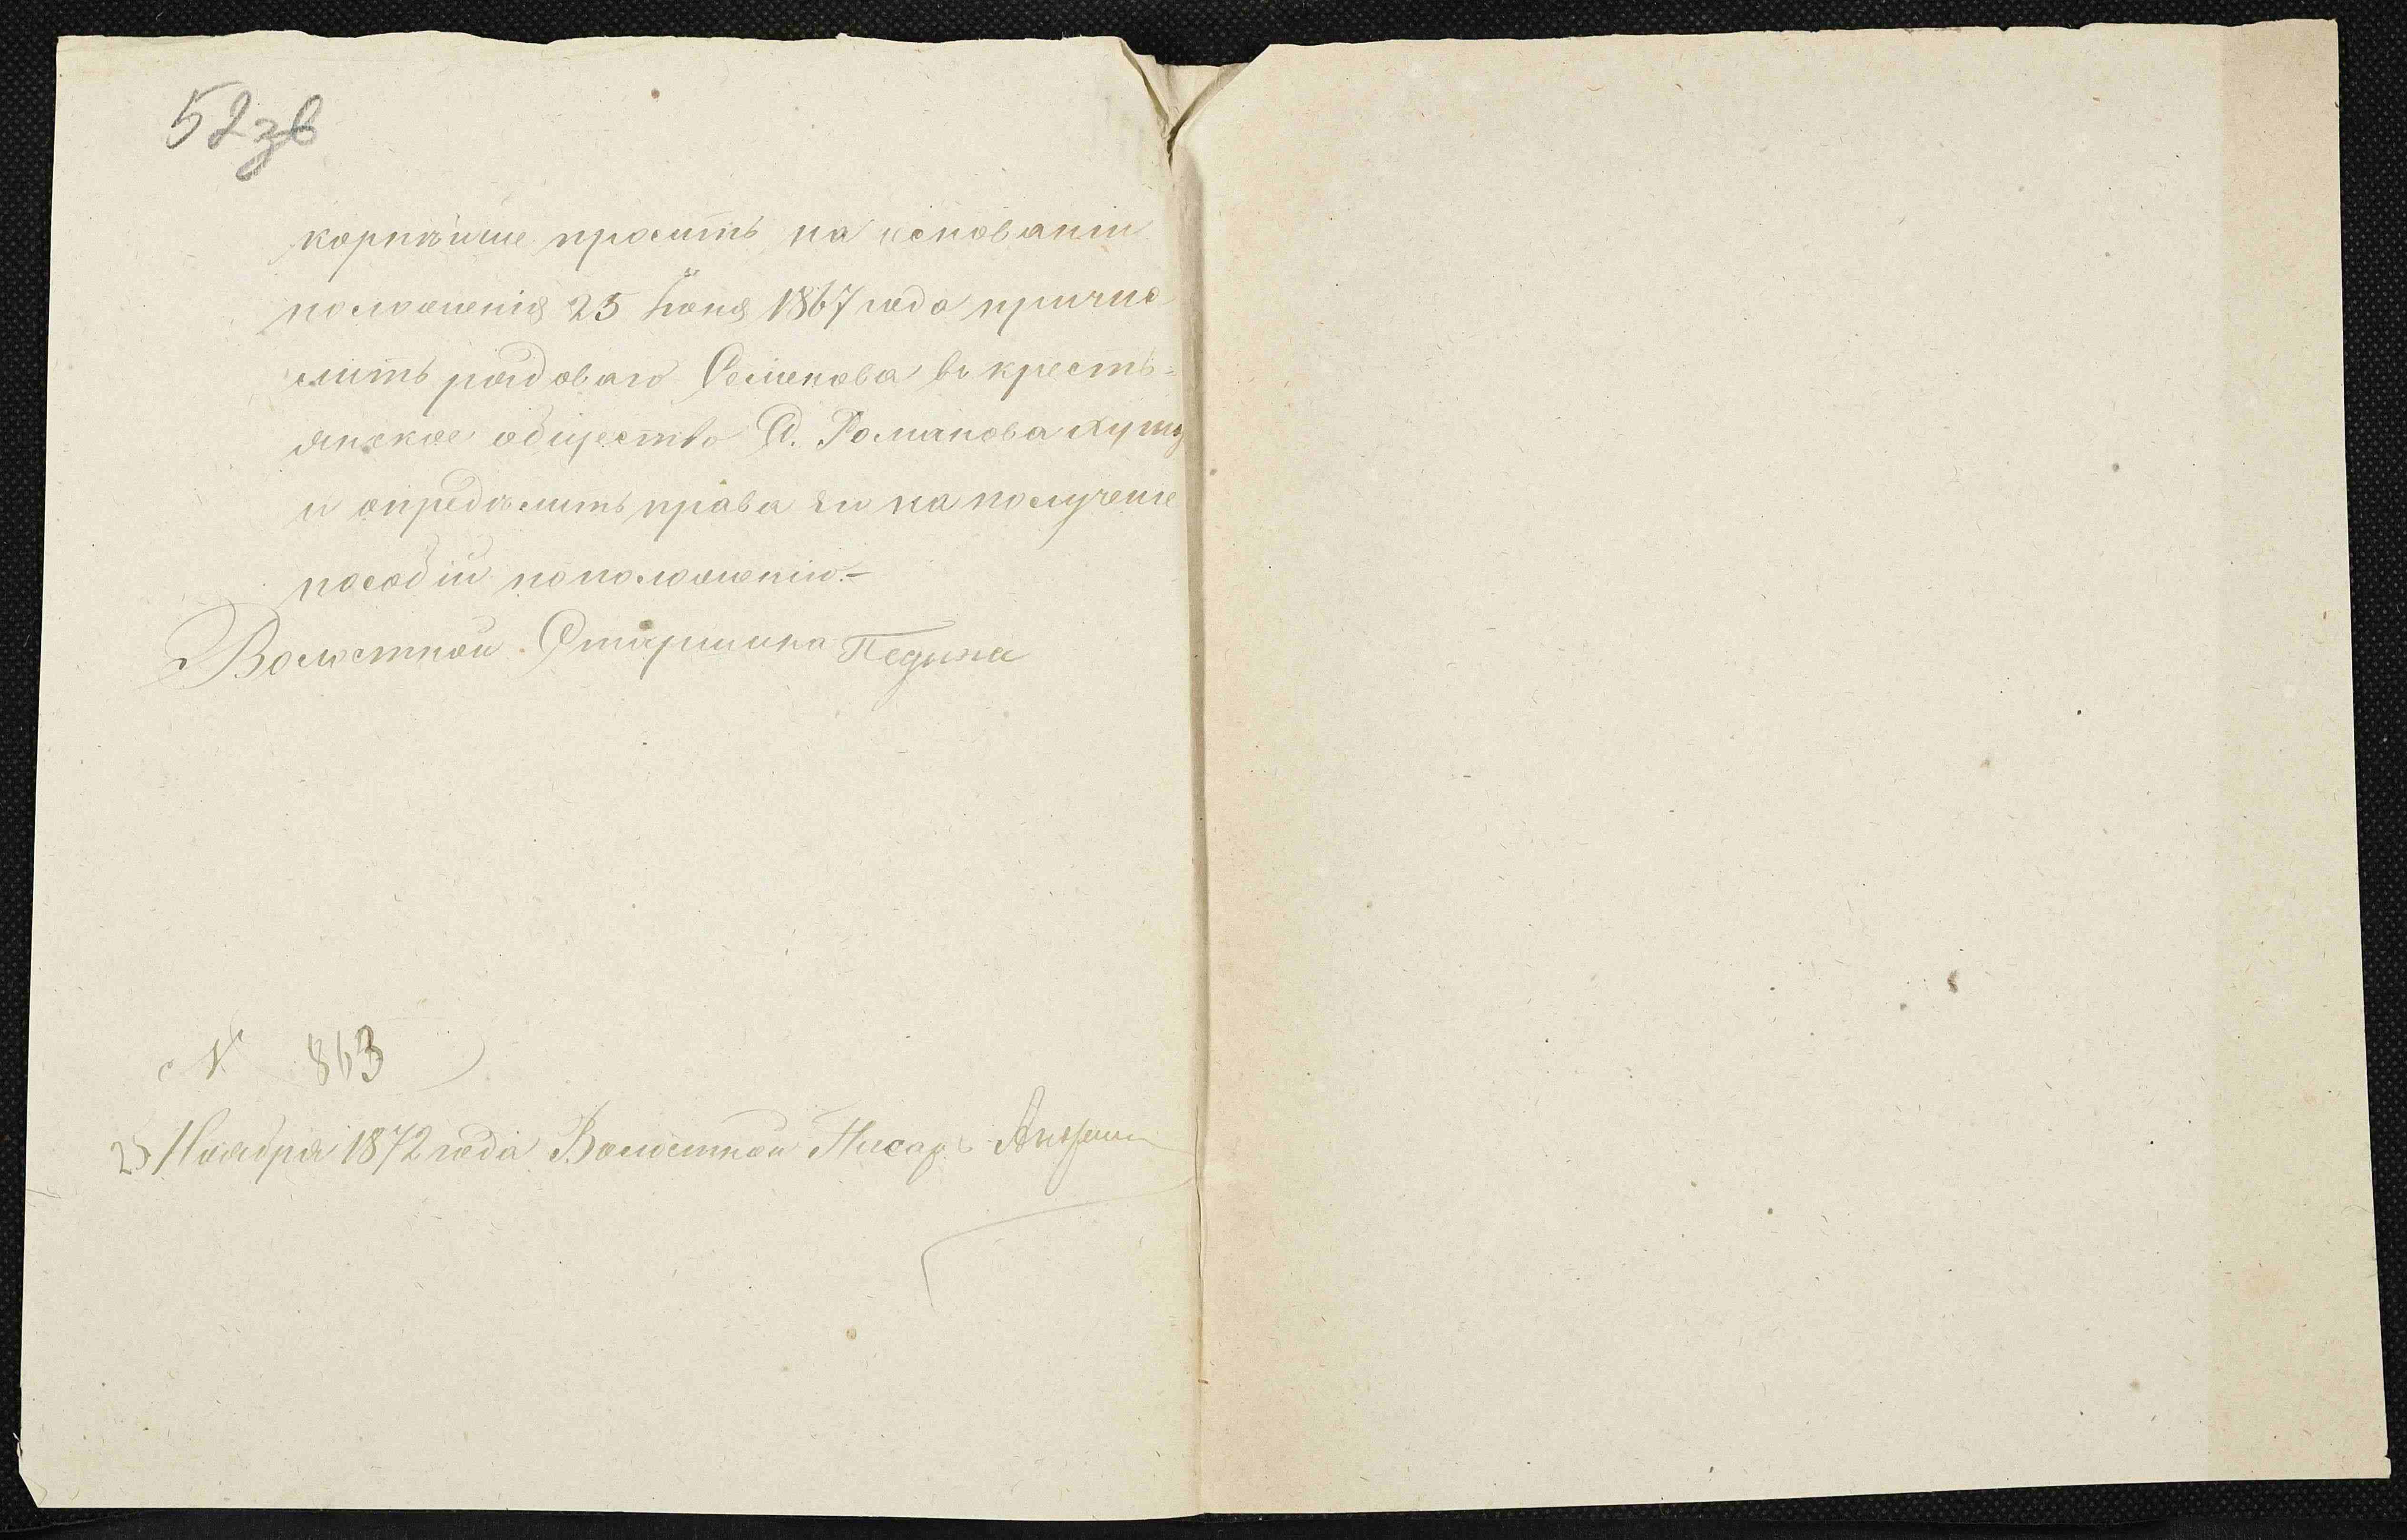 52 зв
корнѣйше просить на основаніи
положенія 25 Іюня 1867 года причис
лить рядоваго Семенова въ кресть-
янское общество С. Романова
и опредѣлить права его на полученіе
пособій по положенію.-
Волостной Старшина Педыка
N 863
25 Ноября 1872 года Волостной Писарь